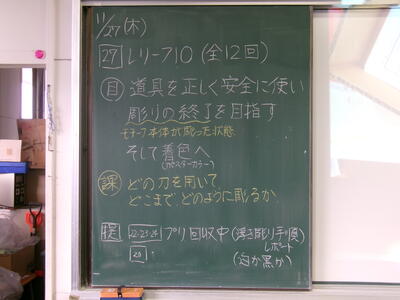 11/27(木)
27 レリーフ10 (全12回)
目 道具を正しく安全に使い
彫りの終了を目指す
モチーフ本体が彫った状態
そして着色へ
(ポスターカラー)
課 どの刀を用いて
どこまで、どのように彫るか
提 22・23・24 プリ回収中(浮き彫り手順)
レポート
25 (白か黒か)